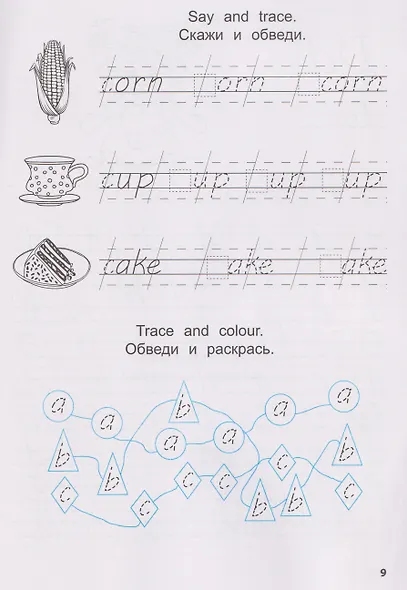 Say and trace.
Скажи и обведи.
corn orn corn
cup up up up
cake ake ake
Trace and colour.
Обведи и раскрась.
a a b a a a a
b b c b
c c c c c
b b
9